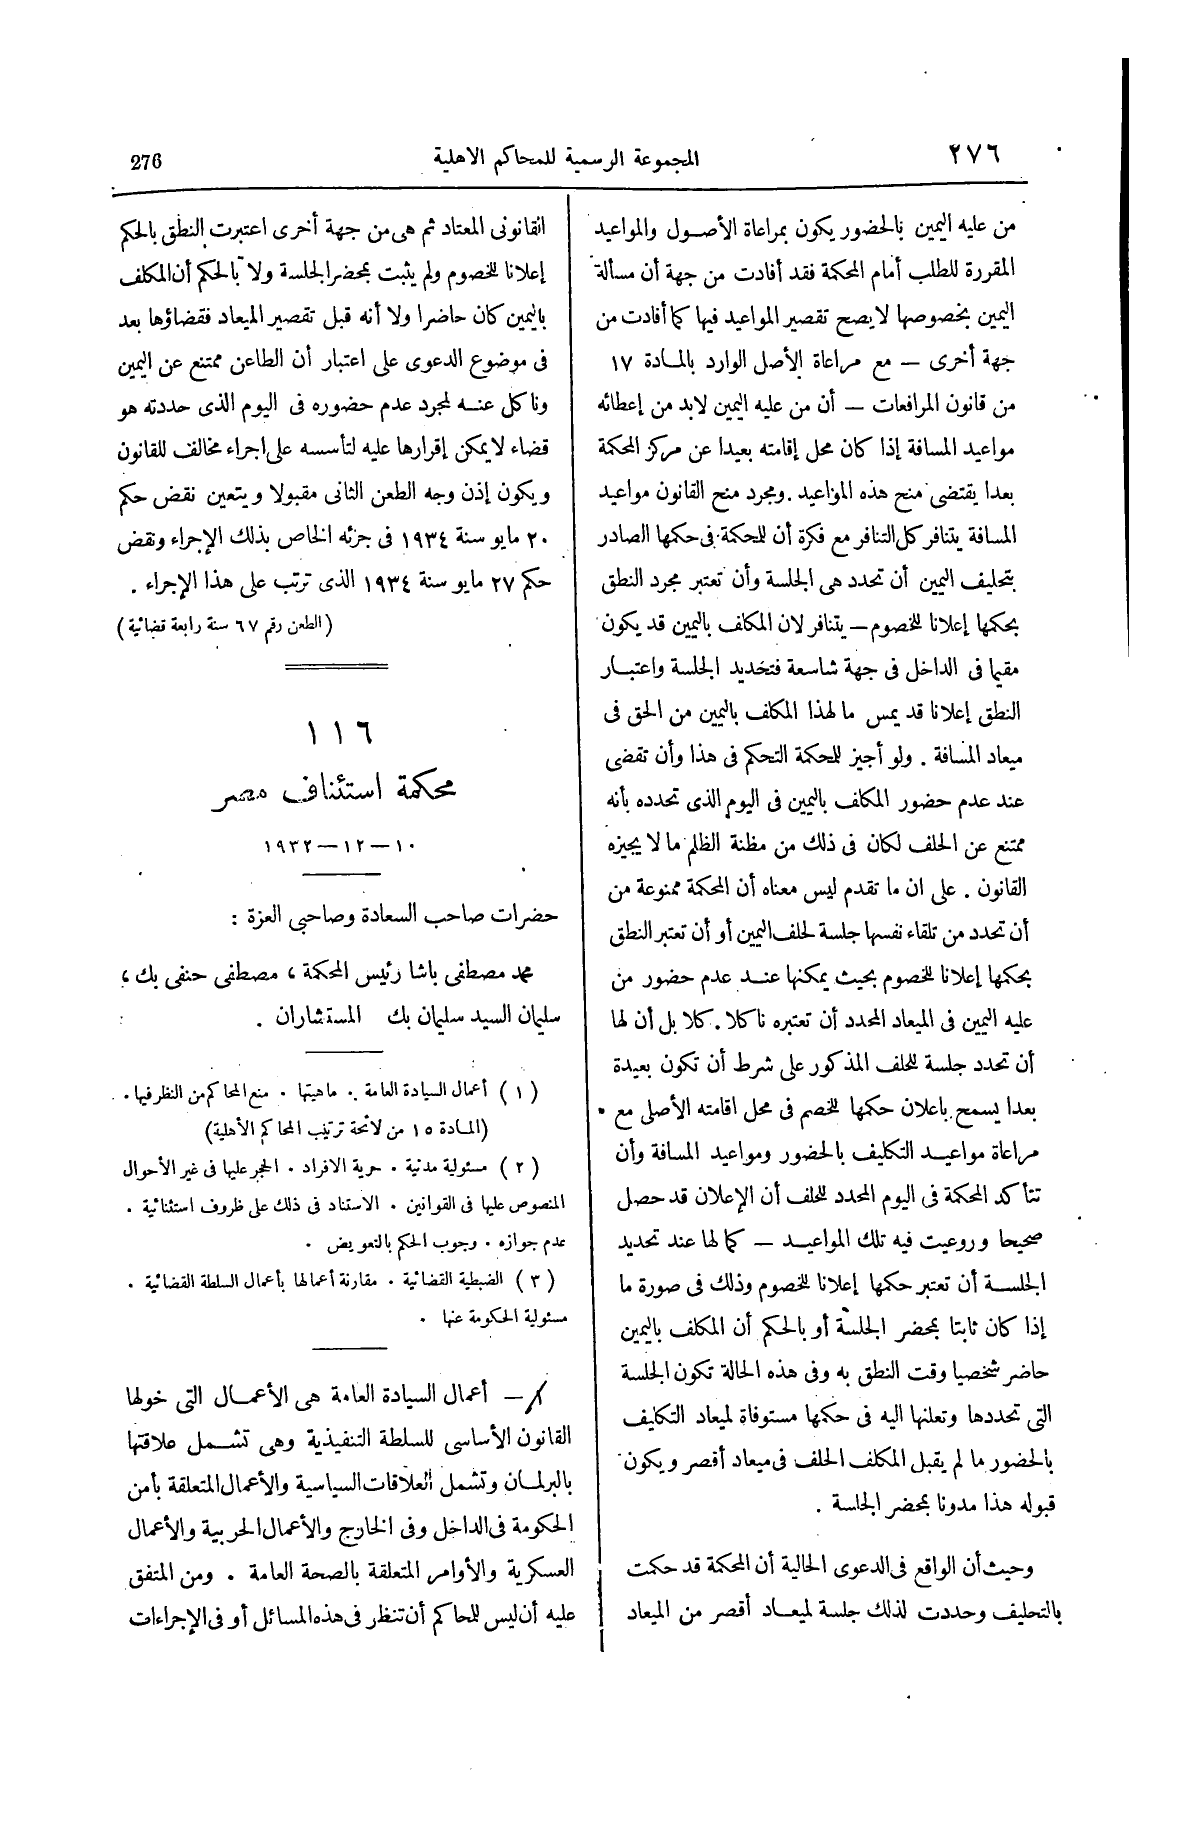 ٢٧٦
المجموعة الرسمية للمحاكم الاهلية
276
من عليه اليمين بالحضور يكون بمراعاة الأصول والمواعيد
المقررة للطلب أمام المحكمة فقد أفادت من جهة أن مسألة
اليمين بخصوصها لا يصح تقصير المواعيد فيها كما أفادت من
جهة أخرى — مع مراعاة الأصل الوارد بالمادة ١٧
من قانون المرافعات — أن من عليه اليمين لابد من إعطائه
مواعيد المسافة إذا كان محل إقامته بعيدا عن مركز المحكمة
بعدا يقتضى منح هذه المواعيد . ومجرد منح القانون مواعيد
المسافة يتنافر كل التنافر مع فكرة أن للمحكمة فى حكمها الصادر
بتحليف اليمين أن تحدد هى الجلسة وأن تعتبر مجرد النطق
بحكمها إعلانا للخصوم — يتنافر لان المكلف باليمين قد يكون
مقيما فى الداخل فى جهة شاسعة فتحديد الجلسة واعتبار
النطق إعلانا قد يمس ما لهذا المكلف باليمين من الحق فى
ميعاد المسافة . ولو أجيز للمحكمة التحكم فى هذا وأن تقضى
عند عدم حضور المكلف باليمين فى اليوم الذى تحدده بأنه
ممتنع عن الحلف لكان فى ذلك من مظنة الظلم ما لا يجيزه
القانون . على ان ما تقدم ليس معناه أن المحكمة ممنوعة من
أن تحدد من تلقاء نفسها جلسة لحلف اليمين أو أن تعتبر النطق
بحكمها إعلانا للخصوم بحيث يمكنها عند عدم حضور من
عليه اليمين فى الميعاد المحدد أن تعتبره ناكلا . كلا بل أن لها
أن تحدد جلسة للحلف المذكور على شرط أن تكون بعيدة
بعدا يسمح باعلان حكمها للخصم فى محل اقامته الأصلى مع
مراعاة مواعيد التكليف بالحضور ومواعيد المسافة وأن
تتأكد المحكمة فى اليوم المحدد للحلف أن الإعلان قد حصل
صحيحا وروعيت فيه تلك المواعيد — كما لها عند تحديد
الجلسة أن تعتبر حكمها إعلانا للخصوم وذلك فى صورة ما
إذا كان ثابتا بمحضر الجلسة أو بالحكم أن المكلف باليمين
حاضر شخصيا وقت النطق به وفى هذه الحالة تكون الجلسة
التى تحددها وتعلنها اليه فى حكمها مستوفاة لميعاد التكليف
بالحضور ما لم يقبل المكلف الحلف فى ميعاد أقصر ويكون
قبوله هذا مدونا بمحضر الجلسة .
وحيث أن الواقع فى الدعوى الحالية أن المحكمة قد حكمت
بالتحليف وحددت لذلك جلسة لميعاد أقصر من الميعاد
القانونى المعتاد ثم هى من جهة أخرى اعتبرت النطق بالحكم
إعلانا للخصوم ولم يثبت بمحضر الجلسة ولا بالحكم أن المكلف
باليمين كان حاضرا ولا أنه قبل تقصير الميعاد فقضاؤها بعد
فى موضوع الدعوى على اعتبار أن الطاعن ممتنع عن اليمين
وناكل عنه لمجرد عدم حضوره فى اليوم الذى حددته هو
قضاء لا يمكن إقرارها عليه لتأسسه على اجراء مخالف للقانون
ويكون إذن وجه الطعن الثانى مقبولا ويتعين نقض حكم
٢٠ مايو سنة ١٩٣٤ فى جزئه الخاص بذلك الإجراء ونقض
حكم ٢٧ مايو سنة ١٩٣٤ الذى ترتب على هذا الإجراء .
(الطعن رقم ٦٧ سنة رابعة قضائية)
١١٦
محكمة استئناف مصر
١٠—١٢—١٩٣٢
حضرات صاحب السعادة وصاحبى العزة :
محمد مصطفى باشا رئيس المحكمة ، مصطفى حنفى بك ،
سليمان السيد سليمان بك المستشاران .
(١) أعمال السيادة العامة . ماهيتها . منع المحاكم من النظر فيها .
(المادة ١٥ من لائحة ترتيب المحاكم الأهلية)
(٢) مسئولية مدنية . حرية الافراد . الحجر عليها فى غير الأحوال
المنصوص عليها فى القوانين . الاستناد فى ذلك على ظروف استثنائية .
عدم جوازه . وجوب الحكم بالتعويض .
(٣) الضبطية القضائية . مقارنة أعمالها بأعمال السلطة القضائية .
مسئولية الحكومة عنها .
١ — أعمال السيادة العامة هى الأعمال التى خولها
القانون الأساسى للسلطة التنفيذية وهى تشمل علاقتها
بالبرلمان وتشمل العلاقات السياسية والأعمال المتعلقة بأمن
الحكومة فى الداخل وفى الخارج والأعمال الحربية والأعمال
العسكرية والأوامر المتعلقة بالصحة العامة . ومن المتفق
عليه أن ليس للمحاكم أن تنظر فى هذه المسائل أو فى الإجراءات